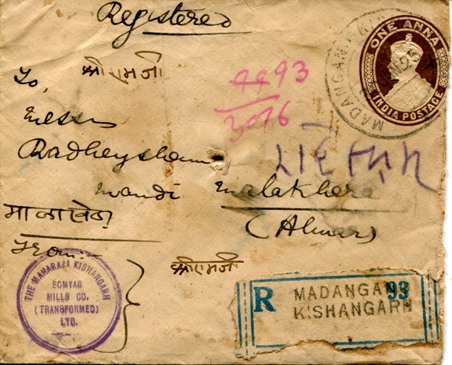 Registered
श्रीरामजी
ONE ANNA
INDIA POSTAGE
MADANGANJ
To,
Messrs
Radheyshem
Mandi Malakhera
(Alwar)
माळाखेडा
From
श्रीरामजी
THE MAHARAJA KISHANGARH
SOMYAG
MILLS CO.
(TRANSFORMED)
LTD.
R MADANGANJ 93
KISHANGARH